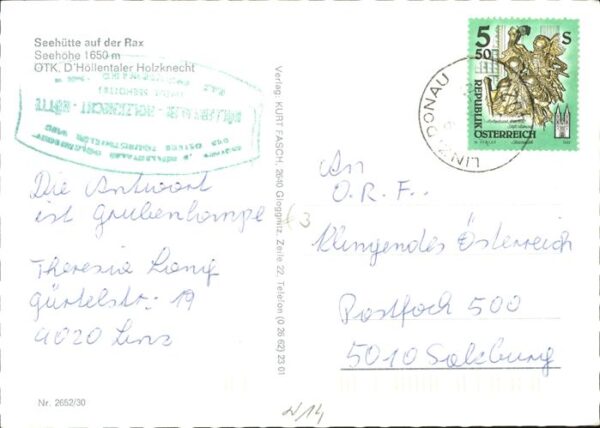 Seehütte auf der Rax
Seehöhe 1650 m
ÖTK, D'Höllentaler Holzknecht
HÖLLENTALER - HOLZKNECHT - HÜTTE
Die Antwort
ist Grubenlampe
Theresia Lang
Gürtelstr. 19
4020 Linz
Nr. 2652/30
Verlag: KURT FASCH, 2640 Gloggnitz, Zeile 22, Telefon (0 26 62) 23 01
5 50 S
REPUBLIK
ÖSTERREICH
LINZ DONAU
An
O.R.F.
Klingendes Österreich
Postfach 500
5010 Salzburg